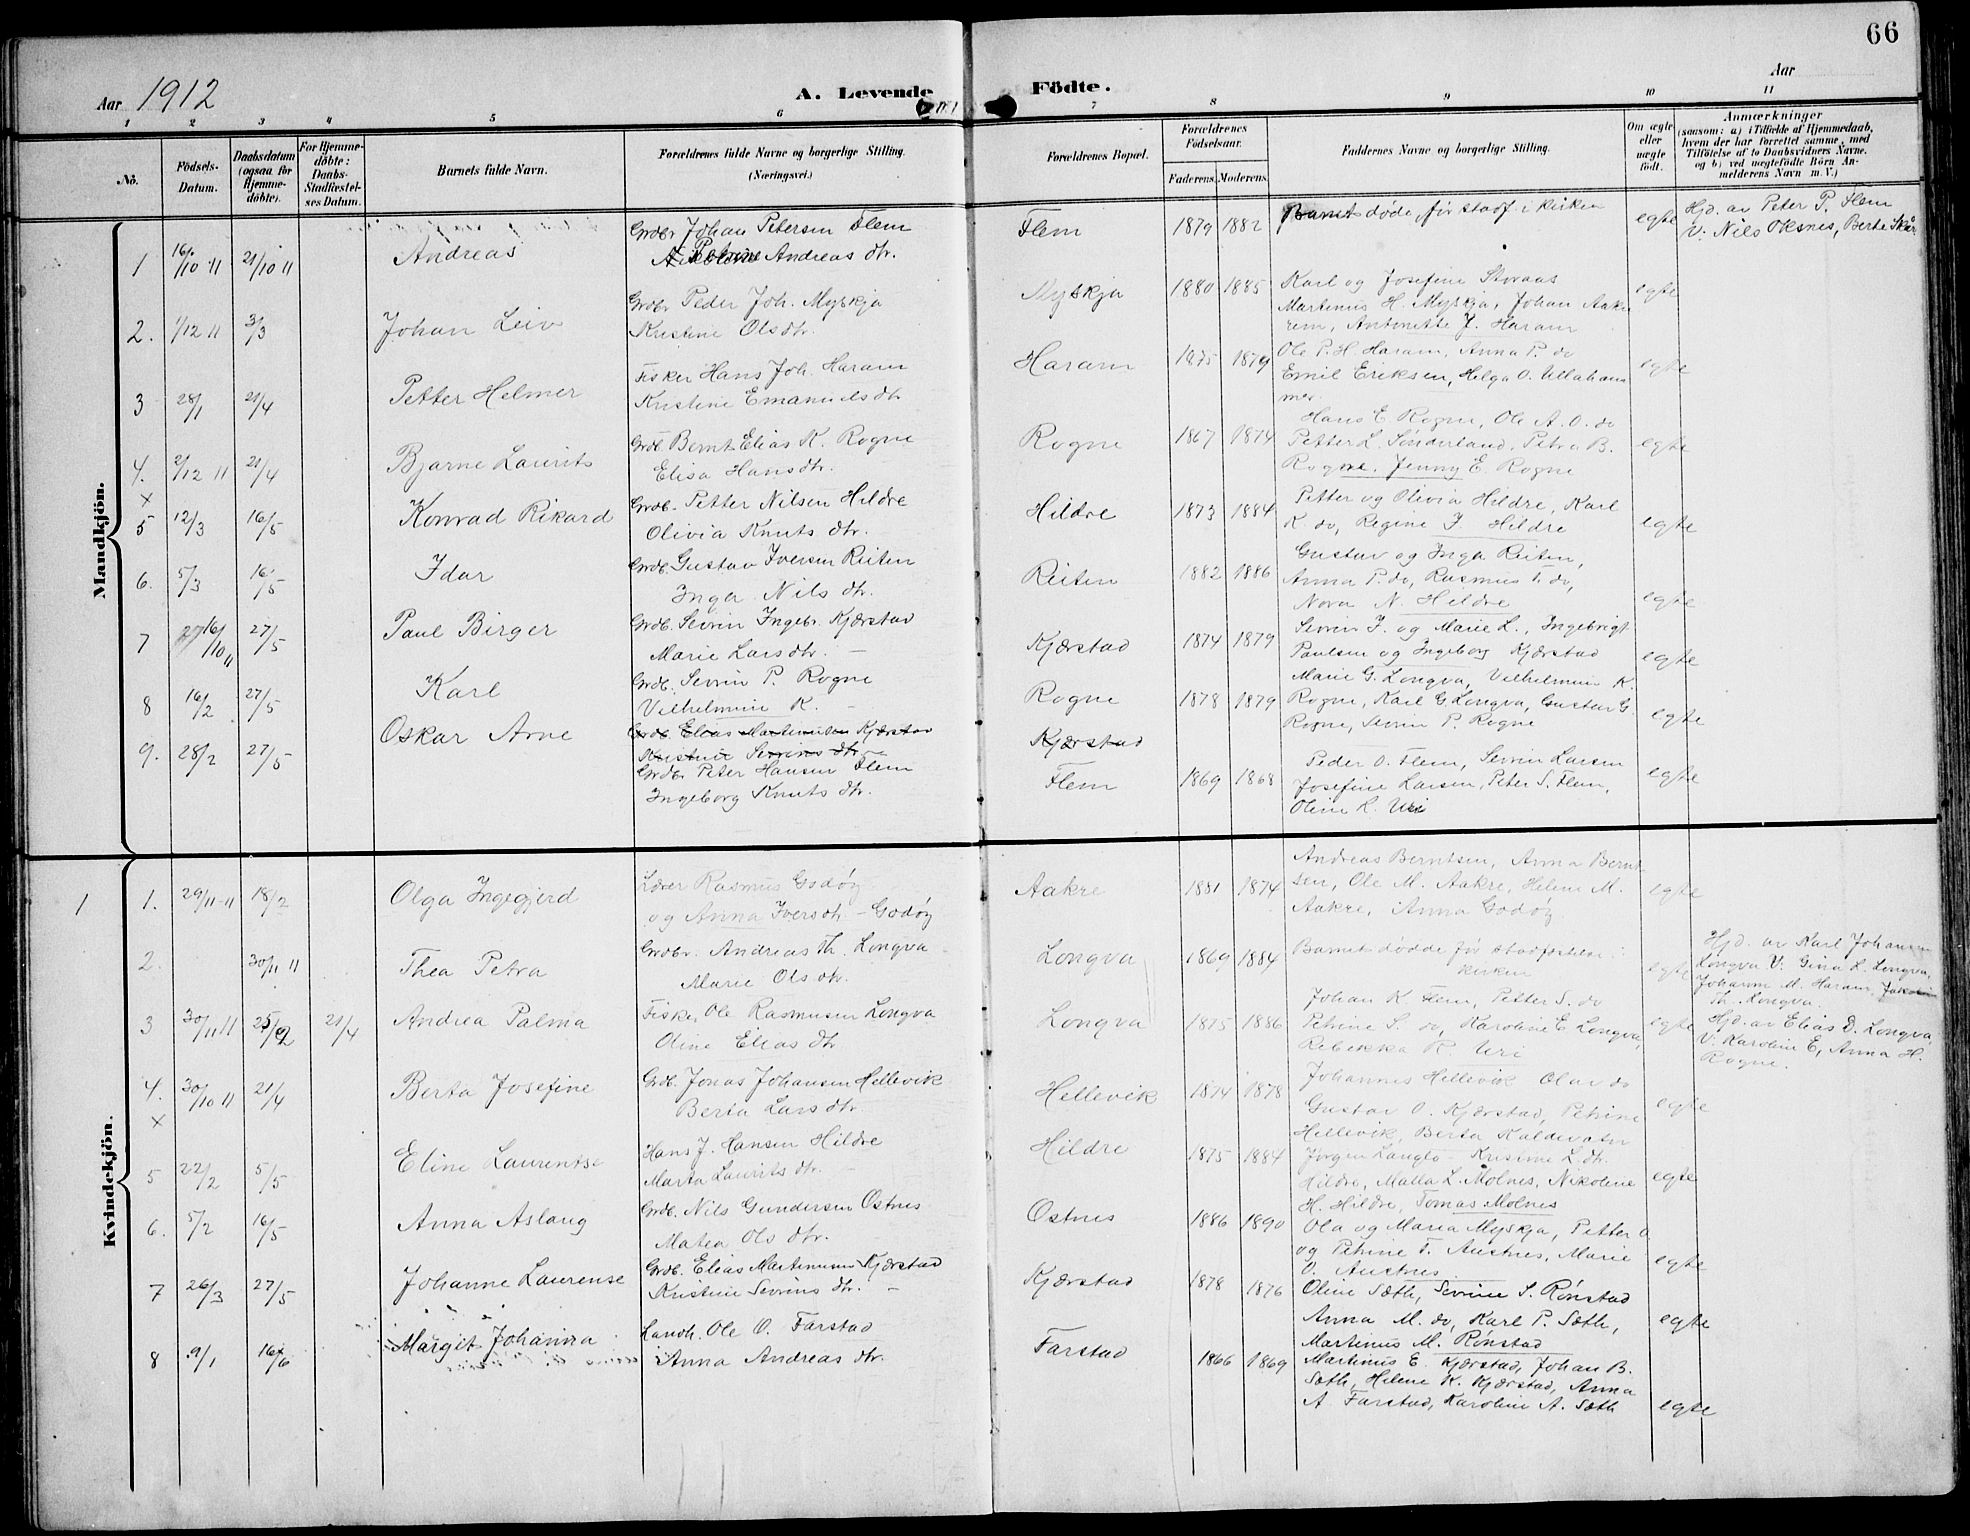 66
Aar 1912
A. Levende
Födte.
Aar
1 2 3 4 5 6 7 8 9 10 11
No.
Födsels-Datum.
Daabsdatum (ogsaa for Hjemme-döbte).
For Hjemme-döbte: Daabs-Stadfæstel-ses Datum.
Barnets fulde Navn.
Forældrenes fulde Navne og borgerlige Stilling. (Næringsvei.)
Forældrenes Bopæl.
Forældrenes Födselsaar.
Faderens. Moderens.
Faddernes Navne og borgerlige Stilling.
Om ægte eller uægte födt.
Anmærkninger
(saasom: a) i Tilfælde af Hjemmedaab, hvem der har forrettet samme, med Tilföielse af to Daabsvidners Navne. og b) ved uægtefödte Börn An-melderens Navn m. V.)
Mandkjön.
1 16/10 11 21/10 11 Andreas Grdbr Johan Petersen Flem
Petrine Andreas dtr. Flem 1879 1882 Barnet døde før stadf. i kirken egte Hjd. av Peter P. Flem
V: Nils Oksnes, Berte Skår
2. 1/12 11 3/3 Johan Leiv Grdbr Peder Joh. Myskja
Kristine Olsdtr. Myskja 1880 1885 Karl og Josefine Storaas
Martinus H. Myskja, Johan Aakre
rem, Antonette J. Haram egte
3 28/1 21/4 Petter Helmer Fisker Hans Joh. Haram
Kristine Emanuelsdtr Haram 1875 1879 Ole P. H. Haram, Anna P. do
Emil Eriksen, Helga O. Ullaham
mer. egte
4. 2/12 11 21/4 Bjarne Laurits Grdb. Bernt Elias K. Rogne
Elisa Hansdtr. Rogne 1867 1874 Hans E Rogne, Ole A. O. do
Petter L. Sønderland, Petra B.
Rogne, Jenny E. Rogne egte
×
5 12/3 16/5 Konrad Rikard Grdb. Petter Nilsen Hildre
Olivia Knuts dtr. Hildre 1873 1884 Petter og Olivia Hildre, Karl
K. do, Regine J. Hildre egte
6. 5/3 16/5 Idar Grdb. Gustav Iversen Reiten
Inga Nils dtr. Reiten 1882 1886 Gustav og Inga Reiten,
Anna P. do, Rasmus T. do,
Nora N. Hildre egte
7 16/10 11 27/5 Paul Birger Grdb. Sevrin Ingebr. Kjærstad
Marie Larsdtr. – Kjærstad 1874 1879 Sevrin I. og Marie L., Ingebrigt
Paulsen og Ingeborg Kjærstad egte
8 16/2 27/5 Karl Grdb. Sevrin P. Rogne
Vilhelmine K. – Rogne 1878 1879 Marie G. Longva, Vilhelmine K.
Rogne, Karl G. Longva, Gustav G.
Rogne, Sevrin P. Rogne egte
9. 28/2 27/5 Oskar Arne Grdb. Elias Martinusen Kjærstad
Kristine Sevrins dtr
Kjærstad
Grdbr Peter Hansen Flem
Ingeborg Knuts dtr. Flem 1869 1868 Peder O. Flem, Sevrin Larsen
Josefine Larsen, Peter S. Flem,
Oline R. Uri egte
Kvindekjön.
1 1. 29/11 11 18/2 Olga Ingegjerd Lærer Rasmus Godøy
og Anna Iversdtr – Godøy Aakre 1881 1874 Andreas Berntsen, Anna Bernt
sen, Ole M. Aakre, Helene M.
Aakre, Anna Godøy egte
2. 30/11 11 Thea Petra Grdbr. Andreas Th. Longva
Marie Olsdtr. Longva 1869 1884 Barnet dødde før stadfestelse i
kirken egte Hjd. av Karl Johansen
Longva V: Gina L. Longva,
Johanne M. Haram,
Th. Longva.
3 30/11 11 21/4 Andrea Palma Fisker Ole Rasmusen Longva
Oline Elias dtr Longva 1875 1886 Johan K. Flem, Petter S. do
Petrine S. do, Karoline E Longva,
Rebekka R. Uri egte Hjd. av Elias D. Longva,
V: Karoline E, Anna H.
Rogne.
4. 30/10 11 21/4 Berta Josefine Grdb. Jonas Johansen Hellevik
Berta Lars dtr Hellevik 1874 1878 Johannes Hellevik Olav do
Gustav O. Kjærstad, Petrine
Hellevik, Berta Kaldevatn egte
×
5 22/2 5/5 Eline Laurentse Hans J. Hansen Hildre
Marta Laurits dtr. – Hildre 1875 1884 Jørgen Langlo – Kristine L. dtr.
Hildre, Malla L. Molnes, Nikolene
H. Hildre, Tomas Molnes egte
6. 5/2 16/5 Anna Aslaug Grdb. Nils Gundersen Ostnes
Matea Ols dtr. Ostnes 1886 1890 Ola og Maria Myskja, Petter O
og Petrine T. Austnes, Marie
O. Austnes egte
7 26/3 27/5 Johanne Laurense Grdb. Elias Martinusen Kjærstad
Kristine Sevrins dtr. – Kjærstad 1878 1876 Oline Sæth, Sevrine S. Rønstad
Anna M. do, Karl P. Sæth,
Martinus M. Rønstad egte
8 9/1 16/6 Margit Johanna Landh. Ole O. Farstad
Anna Andreas dtr. Farstad 1866 1869 Martinus E. Kjærstad, Johan B.
Sæth, Helene K. Kjærstad, Anna
A. Farstad, Karoline A. Sæth egte